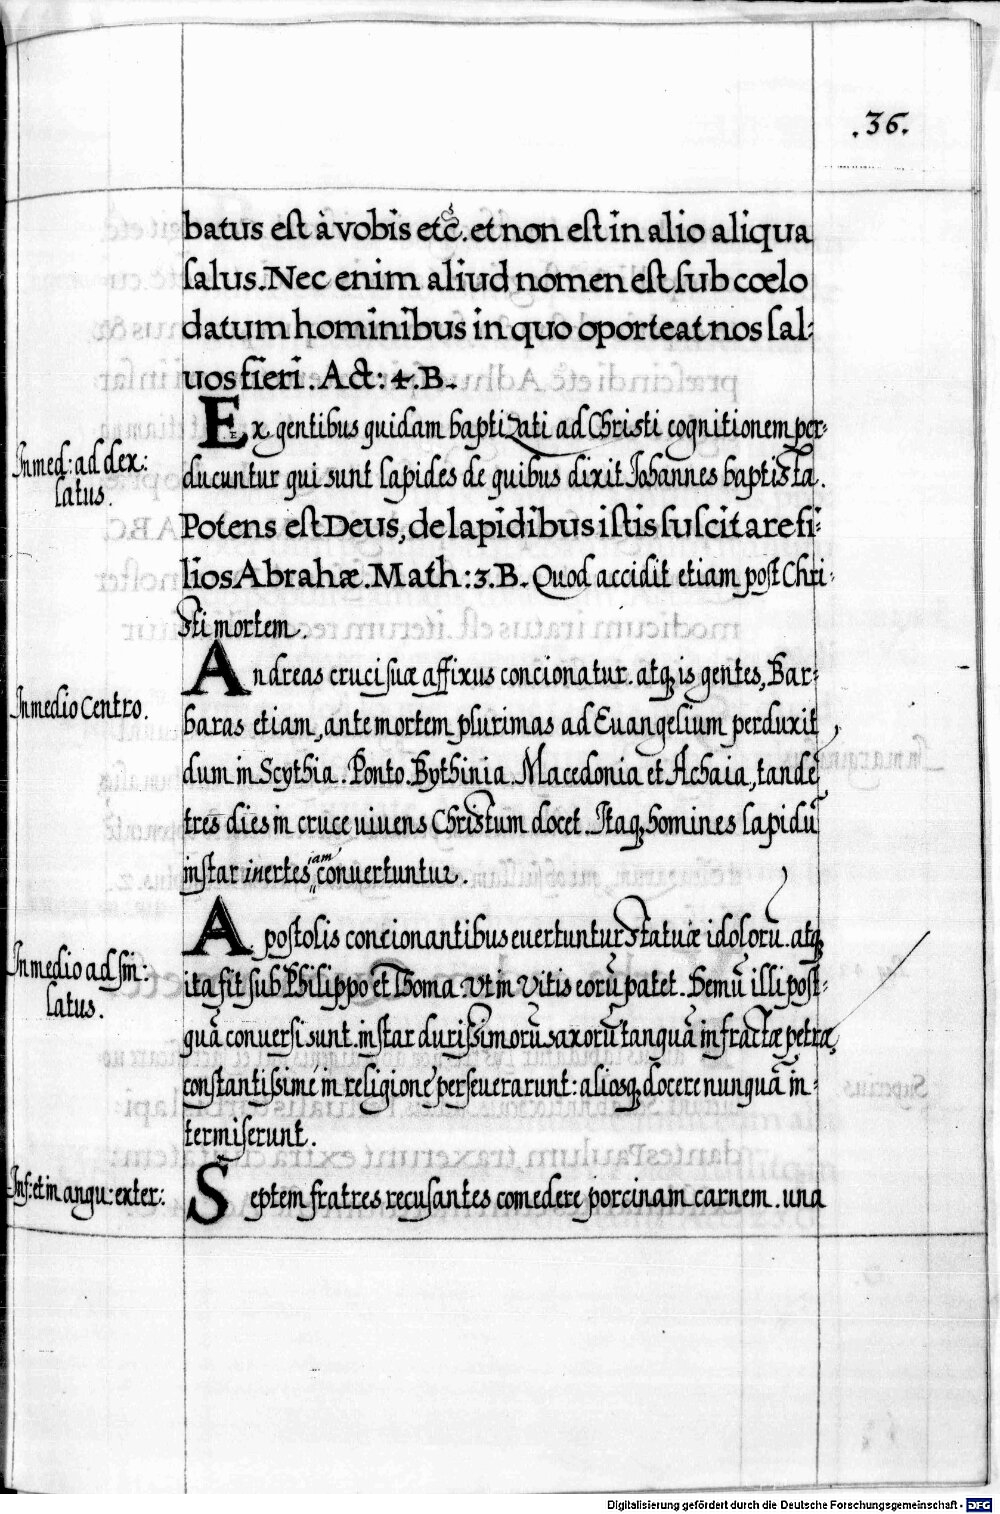 .36.
batus est à vobis etc̃. et non est in alio aliqua
salus. Nec enim aliud nomen est sub cœlo
datum hominibus in quo oporteat nos sal:
uos fieri. Act: 4. B.
Ex gentibus quidam baptizati ad Christi cognitionem per:
In med: ad dex:
latus.
ducuntur qui sunt lapides de quibus dixit Iohannes baptista.
Potens est Deus, de lapidibus istis suscitare fi:
lios Abrahæ. Math: 3. B. Quod accidit etiam post Chri:
sti mortem.
Andreas cruci suæ affixus concionatur. atq; is gentes, Bar:
In medio Centro.
baras etiam, ante mortem plurimas ad Euangelium perduxit,
dum in Scythia. Ponto. Bythinia. Macedonia et Achaia, tandē
tres dies in cruce uiuens Christum docet. Itaq; homines lapidū
instar inertes iam conuertuntur.
Apostolis concionantibus euertuntur statuæ idolorū. atq;
In medio ad sin:
latus.
ita fit sub Philippo et Thoma. Vt in Vitis eorū patet. Hemū illi post:
quā conuersi sunt. instar durissimorū saxorū tanquā infractæ petræ,
constantissimé in religione perseuerarunt: aliosq; docere nunquā in:
termiserunt.
Inf: et in angu: exter:
Septem fratres recusantes comedere porcinam carnem. una
Digitalisierung gefördert durch die Deutsche Forschungsgemeinschaft - DFG